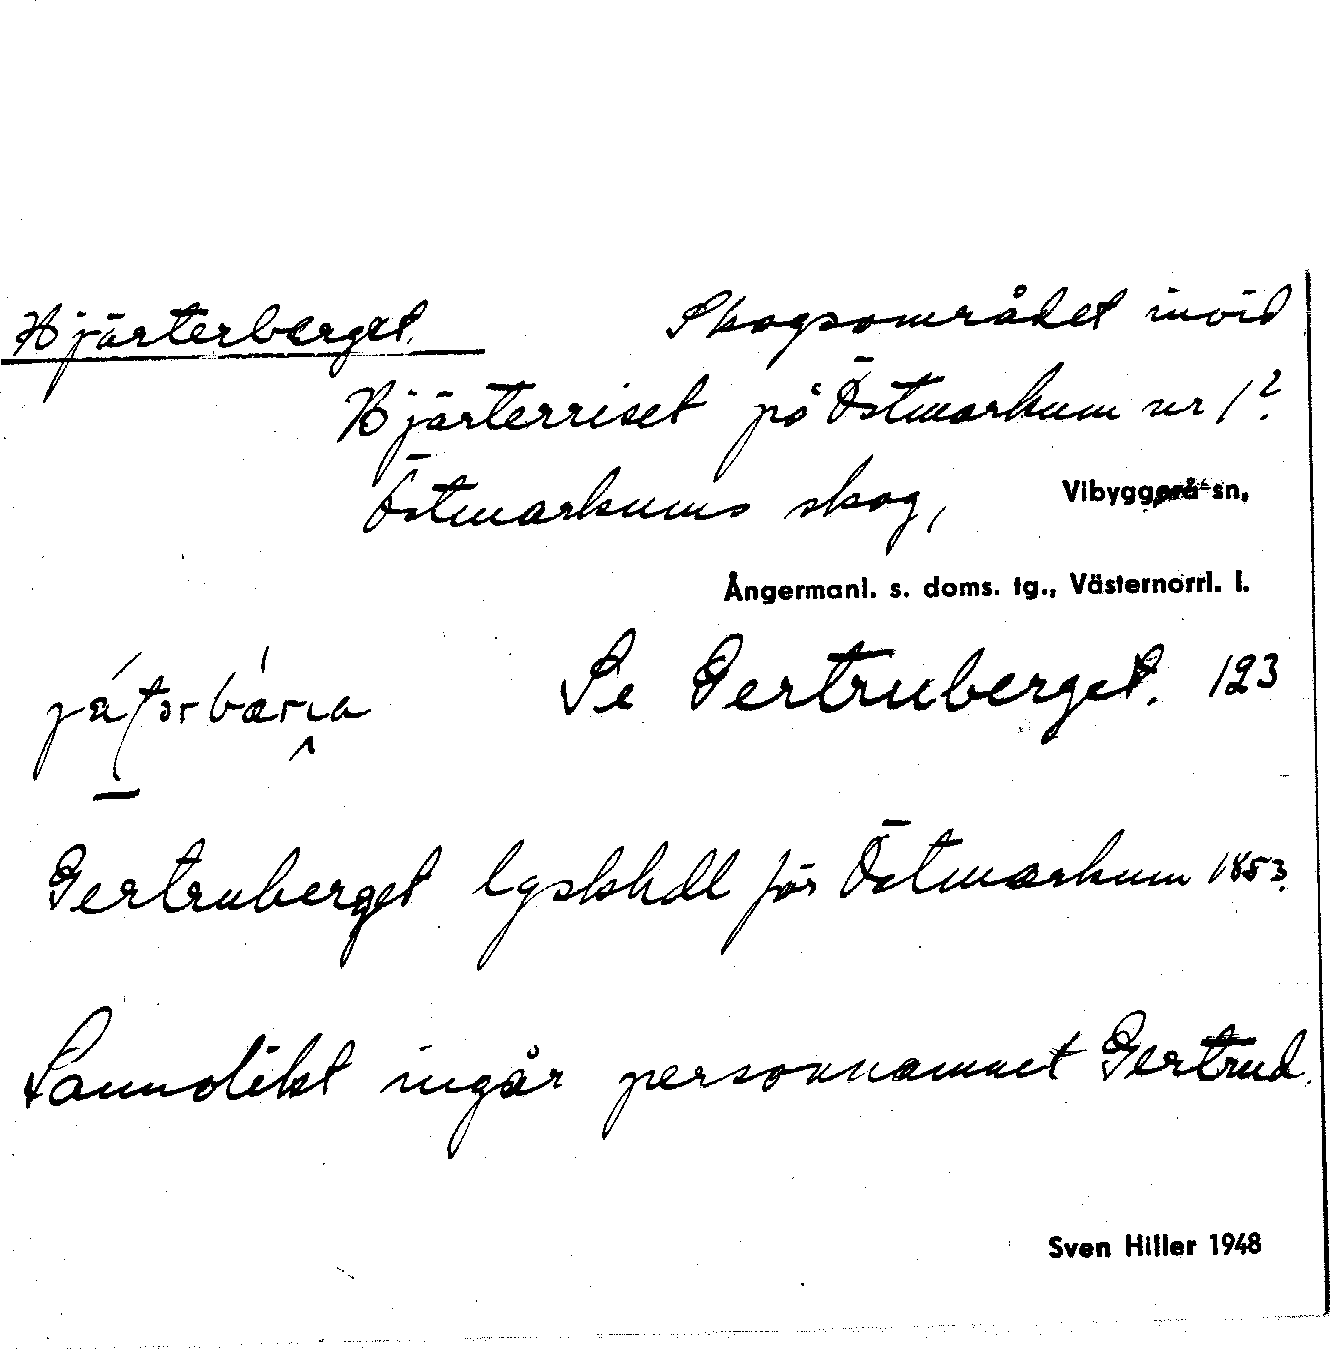 Hjärterberget. Skogsområdet invid
Hjärterriset på Östmarkum nr 1²
Östmarkums skog, Vibyggerå sn,
Ångermanl. s. doms. tg., Västernorrl. l.
Se Gertruberget. 123
Gertruberget lgskhdl för Östmarkum 1853.
Sannolikt ingår personnamnet Gertrud.
Sven Hiller 1948